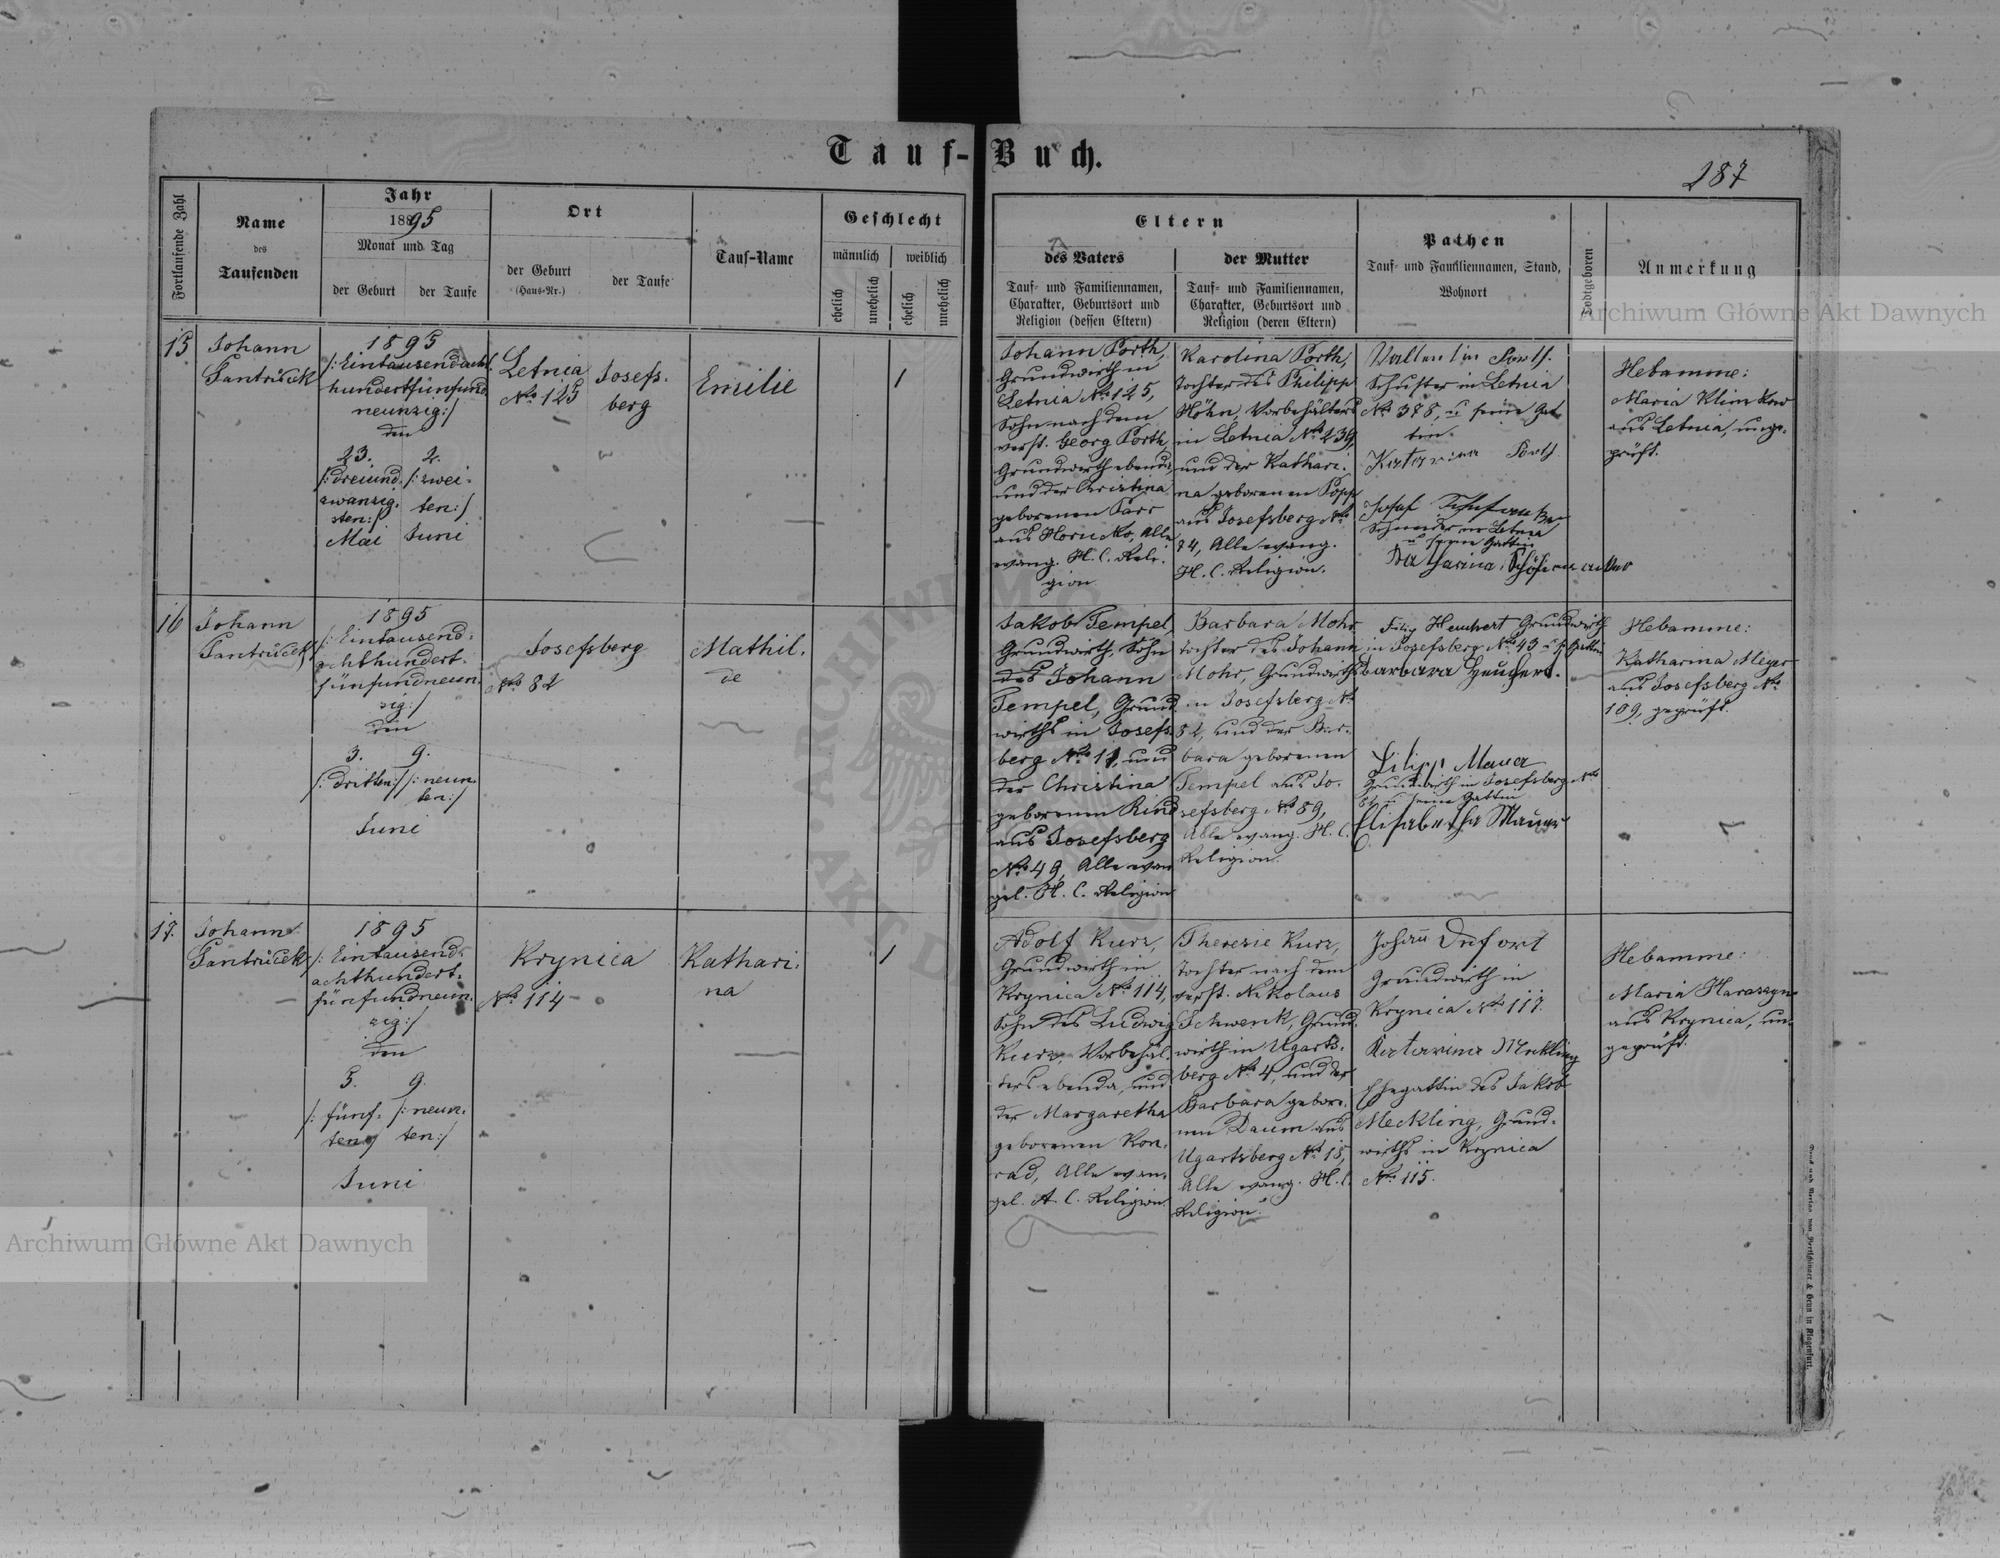 Tauf-Buch.
187
Fortlaufende Zahl
Name
des
Taufenden
Jahr
1895
Monat und Tag
der Geburt
der Taufe
Ort
der Geburt
(Haus-Nr.)
der Taufe
Tauf-Name
Geschlecht
männlich
weiblich
ehelich
unehelich
ehelich
unehelich
Eltern
des Vaters
Tauf- und Familiennamen,
Charakter, Geburtsort und
Religion (dessen Eltern)
der Mutter
Tauf- und Familiennamen,
Charakter, Geburtsort und
Religion (deren Eltern)
Pathen
Tauf- und Familiennamen, Stand,
Wohnort
Todtgeboren
Anmerkung
Archiwum Główne Akt Dawnych
15
Johann
Gantrücek
1895
/: Eintausendacht
hundertfünfund
neunzig:/
den
23.
/: dreiund.
zwanzig.
sten:/
Mai
2.
/: zwei-
ten:/
Juni
Letnia
No 125
Josefs-
berg
Emilie
1
Johann Porth,
Grundwirth in
Letnia No 125,
Sohn nach dem
verst. Georg Porth,
Grundwirth ebenda
und der Christina
geborenen
aus Alle
evang. H. C. Reli-
gion.
Karolina Porth,
Tochter des Philipp
Höhn, Vorbehälters
in Letnia No 239,
und der Kathari-
na geborenen Popp
aus Josefsberg No
84, Alle evang.
H. C. Religion.
Valentin Porth
Schuster in Letnia
No 378, u seine Gat
tin
Katarina Porth
Josef
Schneider in Letnia
u seine Gattin
Katharina
Hebamme:
Maria
aus Letnia, unge-
prüft.
16
Johann
Gantrücek
1895
/: Eintausend-
achthundert-
fünfundneun-
zig:/
den
3.
/: dritten:/
9.
/: neun-
ten:/
Juni
Josefsberg
No 82
Mathil-
de
Jakob Tempel,
Grundwirth, Sohn
des Johann
Tempel, Grund
wirths in Josefs-
berg No 11, und
der Christina
geborenen Rind
aus Josefsberg
No 49, Alle evan
gel. H. C. Religion
Barbara Mohr
Tochter des Johann
Mohr, Grundwirths
in Josefsberg No
82, und der Bar-
bara geborenen
Tempel aus Jo-
sefsberg No 89,
Alle evang. H. C.
Religion.
Filip Heuchert Grundwirth
in Josefsberg No 43 u s. Gattin
Barbara Heuchert.
Filipp Mauer
Grundwirth in Josefsberg No
u seine Gattin
Elisabetha Mauer
Hebamme:
Katharina Meyer
aus Josefsberg No
109, geprüft.
17.
Johann
Gantrücek
1895
/: Eintausend-
achthundert-
fünfundneun-
zig:/
den
5.
/: fünf-
ten:/
9.
/: neun-
ten:/
Juni
Krynica
No 114
Kathari-
na
1
Adolf Kurz,
Grundwirth in
Krynica No 114,
Sohn des Ludwig
Kurz, Vorbehäl-
ters ebenda, und
der Margaretha
geborenen Kon-
rad, Alle evan-
gel. A. C. Religion.
Theresie Kurz,
Tochter nach dem
verst. Nikolaus
Schwenk, Grund-
wirth in Ugarts-
berg No 4, und der
Barbara gebore-
nen Daum aus
Ugartsberg No 15,
Alle evang. H. C.
Religion.
Johann
Grundwirth in
Krynica No 117.
Katarina Mekling
Ehegattin des Jakob
Meckling, Grund-
wirths in Krynica
No 115.
Hebamme:
Maria
aus Krynica, un-
geprüft.
Archiwum Główne Akt Dawnych